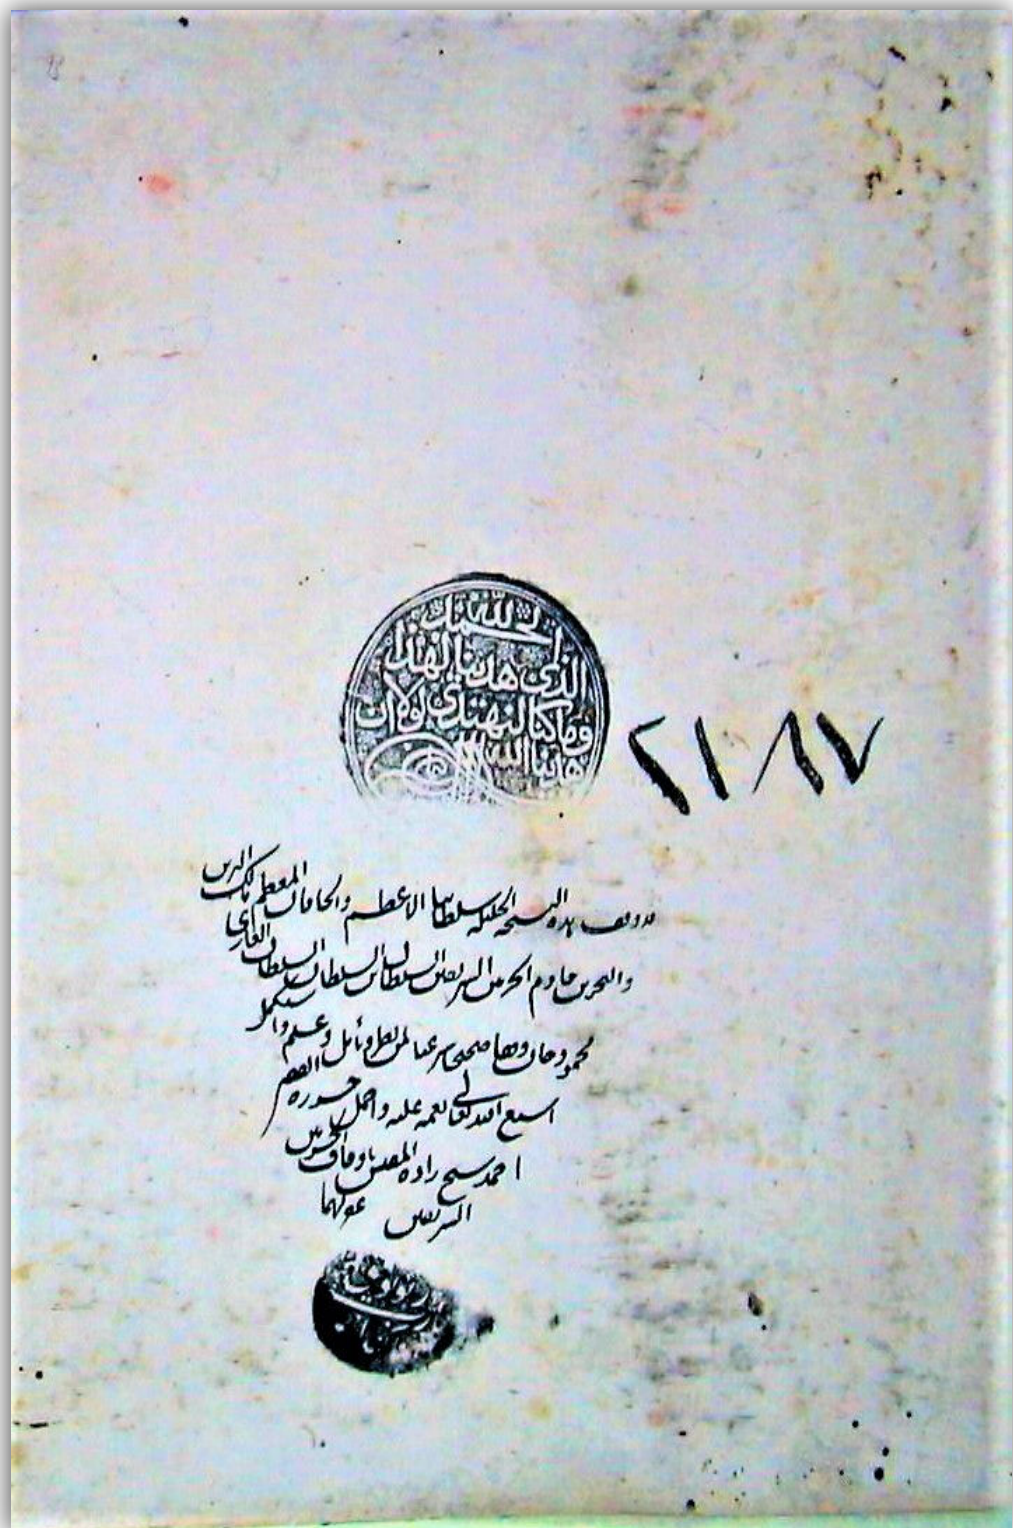 الحمد لله
الذى هدينا لهذا
وما كنا لنهتدي لولا ان
هدينا الله
٢١٨٧
قد وقف هذه النسخه الجليله سلطاننا الاعظم والخاقان المعظم مالك البرين
والبحرين خادم الحرمين الشريفين السلطان بن السلطان السلطان الغازي
محمود خان وقفا صحيحا شرعيا لمن وتأمل وعلم واستكمل
اسبغ الله تعالى نعمه عليه حرره الفقير
احمد شيخ زاده المفتش باوقاف الحرمين
الشريفين غفر لهما